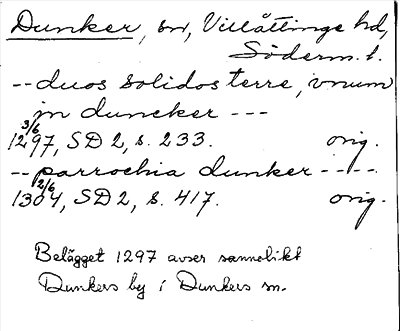 Dunker, sn, Villåttinge hd,
Söderm. l.
-- duos solidos terre, vnum
jn duncker ---
1297, 3/6 SD 2, s. 233. orig.
-- parrochia dunker ----
1304, 2/6 SD 2, s. 417. orig.
Belägget 1297 avser sannolikt
Dunkers by i Dunkers sn.